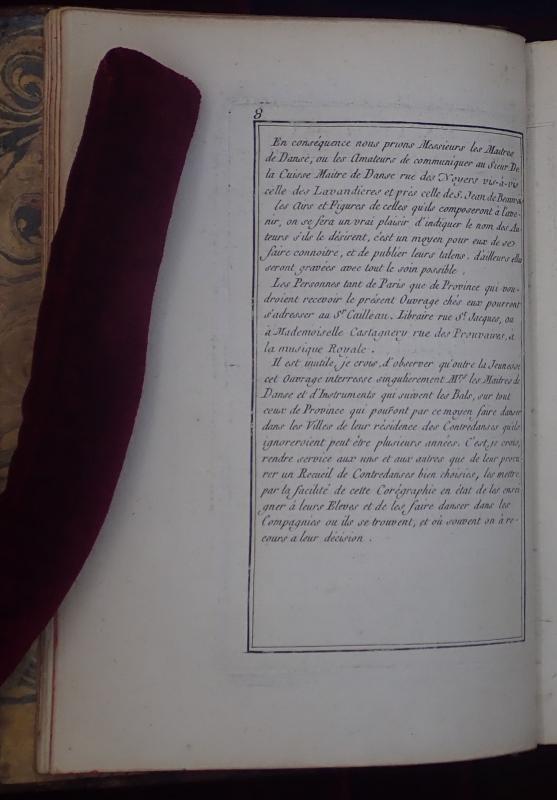 8
En conséquence nous prions Messieurs les Maitres
de Danse, ou les Amateurs de communiquer au Sieur De
la Cuisse Maitre de Danse rue des Noyers vis-à-vis
celle des Lavandieres et près celle de S. Jean de Beauva
les Airs et Figures de celles qu'ils composeront à l'ave-
nir, on se fera un vrai plaisir d'indiquer le nom des Au-
teurs s'ils le désirent, c'est un moyen pour eux de se
faire connoitre, et de publier leurs talens. d'ailleurs elles
seront gravées avec tout le soin possible.
Les Personnes tant de Paris que de Province qui vou-
droient recevoir le présent Ouvrage chés eux pourront
s'adresser au Sr. Cailleau. Libraire rue St. Jacques, ou
à Mademoiselle Castagnery rue des Prouvaires, à
la musique Royale.
Il est inutile, je crois, d'observer qu'outre la Jeunesse
cet Ouvrage interresse singulierement Mrs. les Maitres de
Danse et d'Instruments qui suivent les Bals, sur tout
ceux de Province qui pouront par ce moyen faire danser
dans les Villes de leur résidence des Contredanses qu'ils
ignoreroient peut être plusieurs années. C'est, je crois,
rendre service aux uns et aux autres que de leur procu-
rer un Recueil de Contredanses bien choisies, les mettre
par la facilité de cette Corégraphie en état de les ensei
gner à leurs Eleves et de les faire danser dans les
Compagnies ou ils se trouvent, et où souvent on à re-
cours a leur décision.